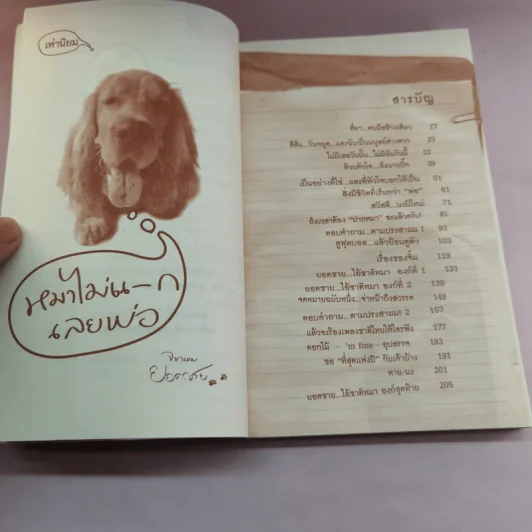 เห่านิยม
หมาไม่น-ก
เลยพ่อ
สารบัญ
ที่มา...คนมือข้างเดียว 17
สีสัน...วันหยุด...และฉันเป็นมนุษย์ต่างดาว 23
ไม่มีเธอวันนั้น ไม่มีฉันวันนี้ 33
39
เป็นอย่างที่ใช่...และที่หัวใจบอกให้เป็น 51
สิ่งมีชีวิตที่เรียกว่า "พ่อ" 61
สวัสดี...นะปีใหม่ 71
ถึงเวลาต้อง "ปากหมา" ซะแล้วครับ! 81
ตอบคำถาม...ตามประสาผม 1 91
ดูฟุตบอล...แล้วย้อนดูตัว 103
เรื่องของจิ้ม 119
ยอดชาย...ไอ้ชาติหมา องก์ที่ 1 131
ยอดชาย...ไอ้ชาติหมา องก์ที่ 2 139
จดหมายฉบับหนึ่ง...จ่าหน้าถึงสวรรค์ 149
ตอบคำถาม...ตามประสาผม! 2 157
แล้วจะร้องเพลงชาติไทยให้ใครฟัง 173
ดอกไม้ - 'm fine - อุปสรรค 183
ขอ "ที่สุดแห่งปี" กับเค้าบ้าง 191
หาย-นะ 201
ยอดชาย...ไอ้ชาติหมา องก์สุดท้าย 205